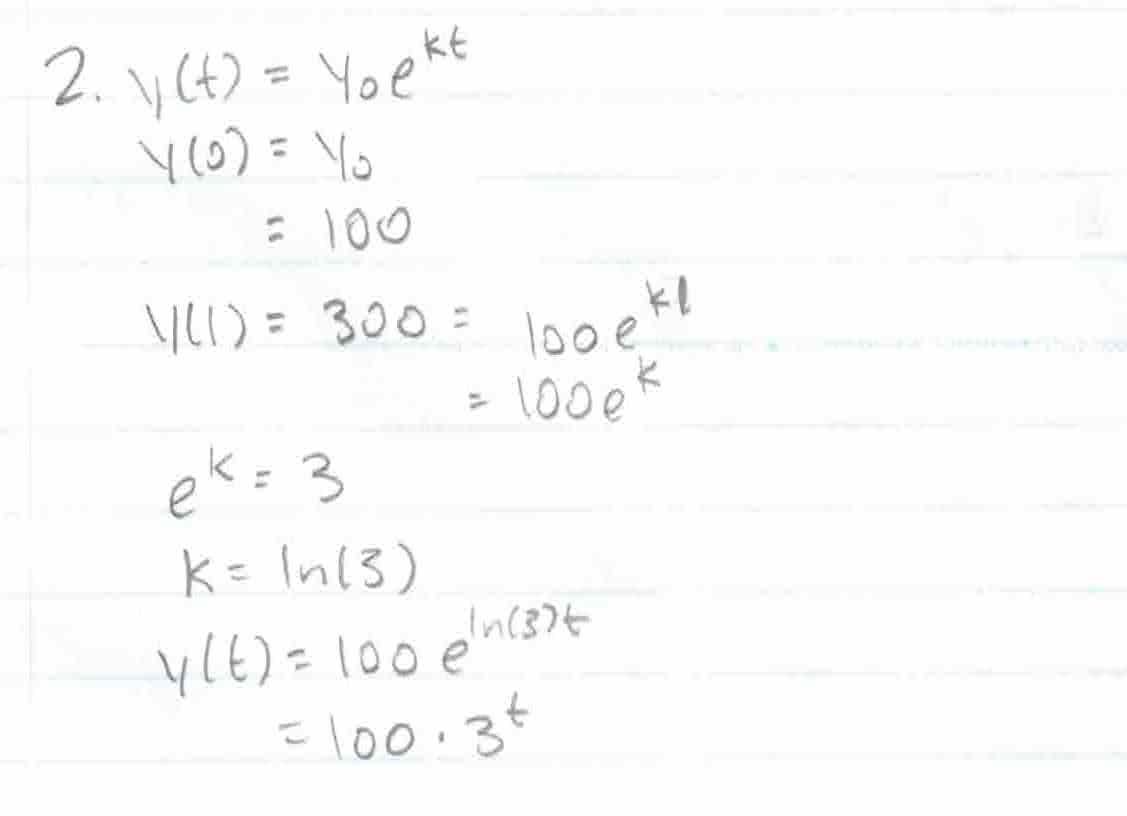 2. y(t) = y₀e^{kt}
y(0) = y₀
= 100
y(1) = 300 = 100e^{k1}
= 100e^{k}
e^{k} = 3
k = ln(3)
y(t) = 100 e^{ln(3)t}
= 100 · 3^{t}